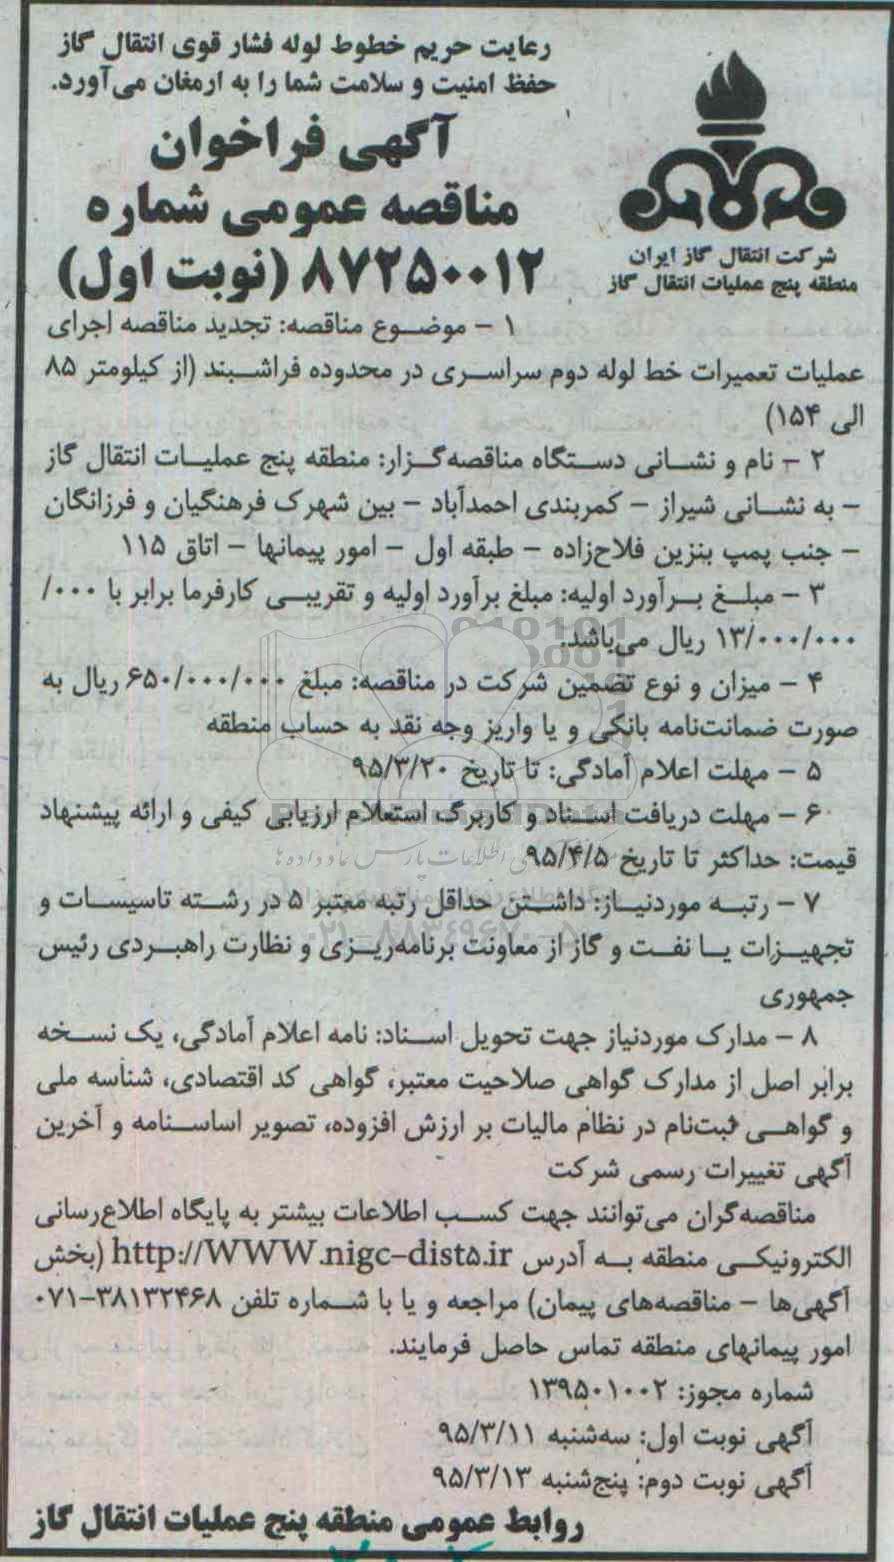 رعایت حریم خطوط لوله فشار قوی انتقال گاز
حفظ امنیت و سلامت شما را به ارمغان می‌آورد.
آگهی فراخوان
مناقصه عمومی شماره
۸۷۲۵۰۰۱۲ (نوبت اول)
شرکت انتقال گاز ایران
منطقه پنج عملیات انتقال گاز
۱ – موضوع مناقصه: تجدید مناقصه اجرای
عملیات تعمیرات خط لوله دوم سراسری در محدوده فراشبند (از کیلومتر ۸۵
الی ۱۵۴)
۲ – نام و نشانی دستگاه مناقصه‌گزار: منطقه پنج عملیات انتقال گاز
– به نشانی شیراز – کمربندی احمدآباد – بین شهرک فرهنگیان و فرزانگان
– جنب پمپ بنزین فلاح‌زاده – طبقه اول – امور پیمانها – اتاق ۱۱۵
۳ – مبلغ برآورد اولیه: مبلغ برآورد اولیه و تقریبی کارفرما برابر با ۰۰۰/
۱۳/۰۰۰/۰۰۰ ریال می‌باشد.
۴ – میزان و نوع تضمین شرکت در مناقصه: مبلغ ۶۵۰/۰۰۰/۰۰۰ ریال به
صورت ضمانت‌نامه بانکی و یا واریز وجه نقد به حساب منطقه
۵ – مهلت اعلام آمادگی: تا تاریخ ۹۵/۳/۲۰
۶ – مهلت دریافت اسناد و کاربرگ استعلام ارزیابی کیفی و ارائه پیشنهاد
قیمت: حداکثر تا تاریخ ۹۵/۴/۵
۷ – رتبه موردنیاز: داشتن حداقل رتبه معتبر ۵ در رشته تاسیسات و
تجهیزات یا نفت و گاز از معاونت برنامه‌ریزی و نظارت راهبردی رئیس
جمهوری
۸ – مدارک موردنیاز جهت تحویل اسناد: نامه اعلام آمادگی، یک نسخه
برابر اصل از مدارک گواهی صلاحیت معتبر، گواهی کد اقتصادی، شناسه ملی
و گواهی ثبت‌نام در نظام مالیات بر ارزش افزوده، تصویر اساسنامه و آخرین
آگهی تغییرات رسمی شرکت
مناقصه‌گران می‌توانند جهت کسب اطلاعات بیشتر به پایگاه اطلاع‌رسانی
الکترونیکی منطقه به آدرس http://WWW.nigc-dist۵.ir (بخش
آگهی‌ها – مناقصه‌های پیمان) مراجعه و یا با شماره تلفن ۳۸۱۳۲۴۶۸–۰۷۱
امور پیمانهای منطقه تماس حاصل فرمایند.
شماره مجوز: ۱۳۹۵۰۱۰۰۲
آگهی نوبت اول: سه‌شنبه ۹۵/۳/۱۱
آگهی نوبت دوم: پنج‌شنبه ۹۵/۳/۱۳
روابط عمومی منطقه پنج عملیات انتقال گاز